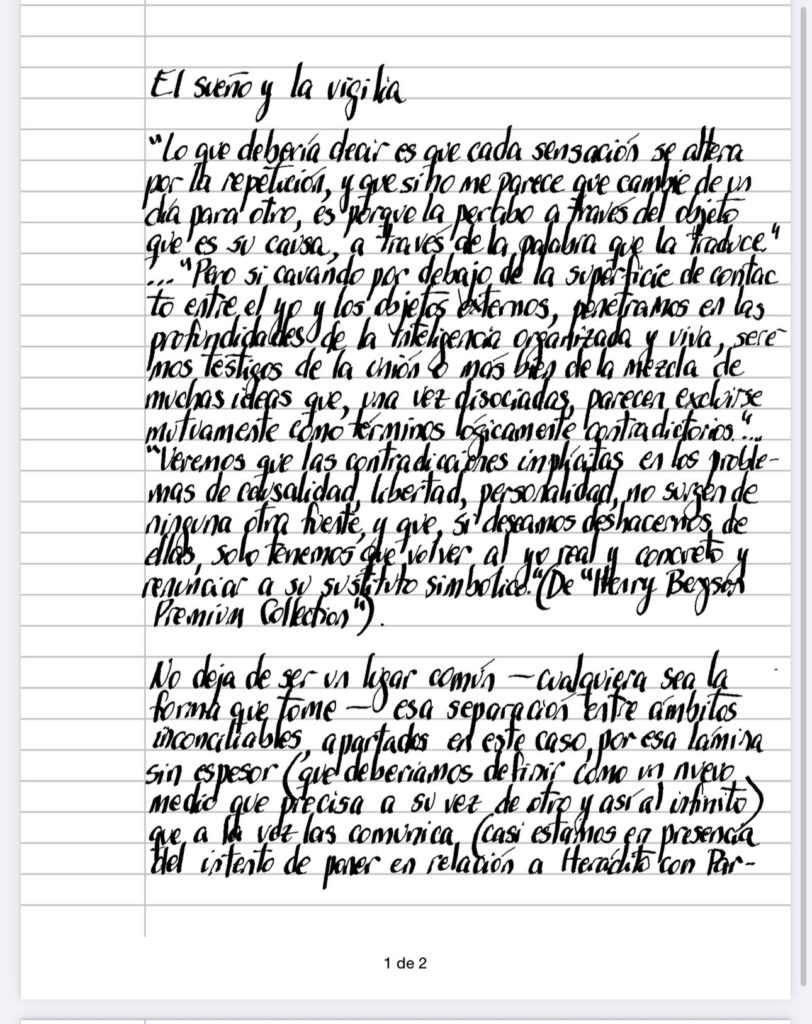 El sueño y la vigilia
"Lo que debería decir es que cada sensación se altera
por la repetición, y que si no me parece que cambie de un
día para otro, es porque la percibo a través del objeto
que es su causa, a través de la palabra que la traduce."
..."Pero si cavando por debajo de la superficie de contac
to entre el yo y los objetos externos, penetramos en las
profundidades de la inteligencia organizada y viva, sere-
mos testigos de la unión o más bien de la mezcla de
muchas ideas que, una vez disociadas, parecen excluirse
mutuamente como términos lógicamente contradictorios."...
"Veremos que las contradicciones implícitas en los proble-
mas de causalidad, libertad, personalidad, no surgen de
ninguna otra fuente, y que, si deseamos deshacernos de
ellas, solo tenemos que volver al yo real y concreto y
renunciar a su sustituto simbólico." (De "Henry Bergson
Premium Collection").
No deja de ser un lugar común — cualquiera sea la
forma que tome — esa separación entre ámbitos
inconciliables, apartados en este caso, por esa lámina
sin espesor (que deberíamos definir como un nuevo
medio que precisa a su vez de otro y así al infinito)
que a la vez las comunica (casi estamos en presencia
del intento de poner en relación a Heráclito con Par-
1 de 2